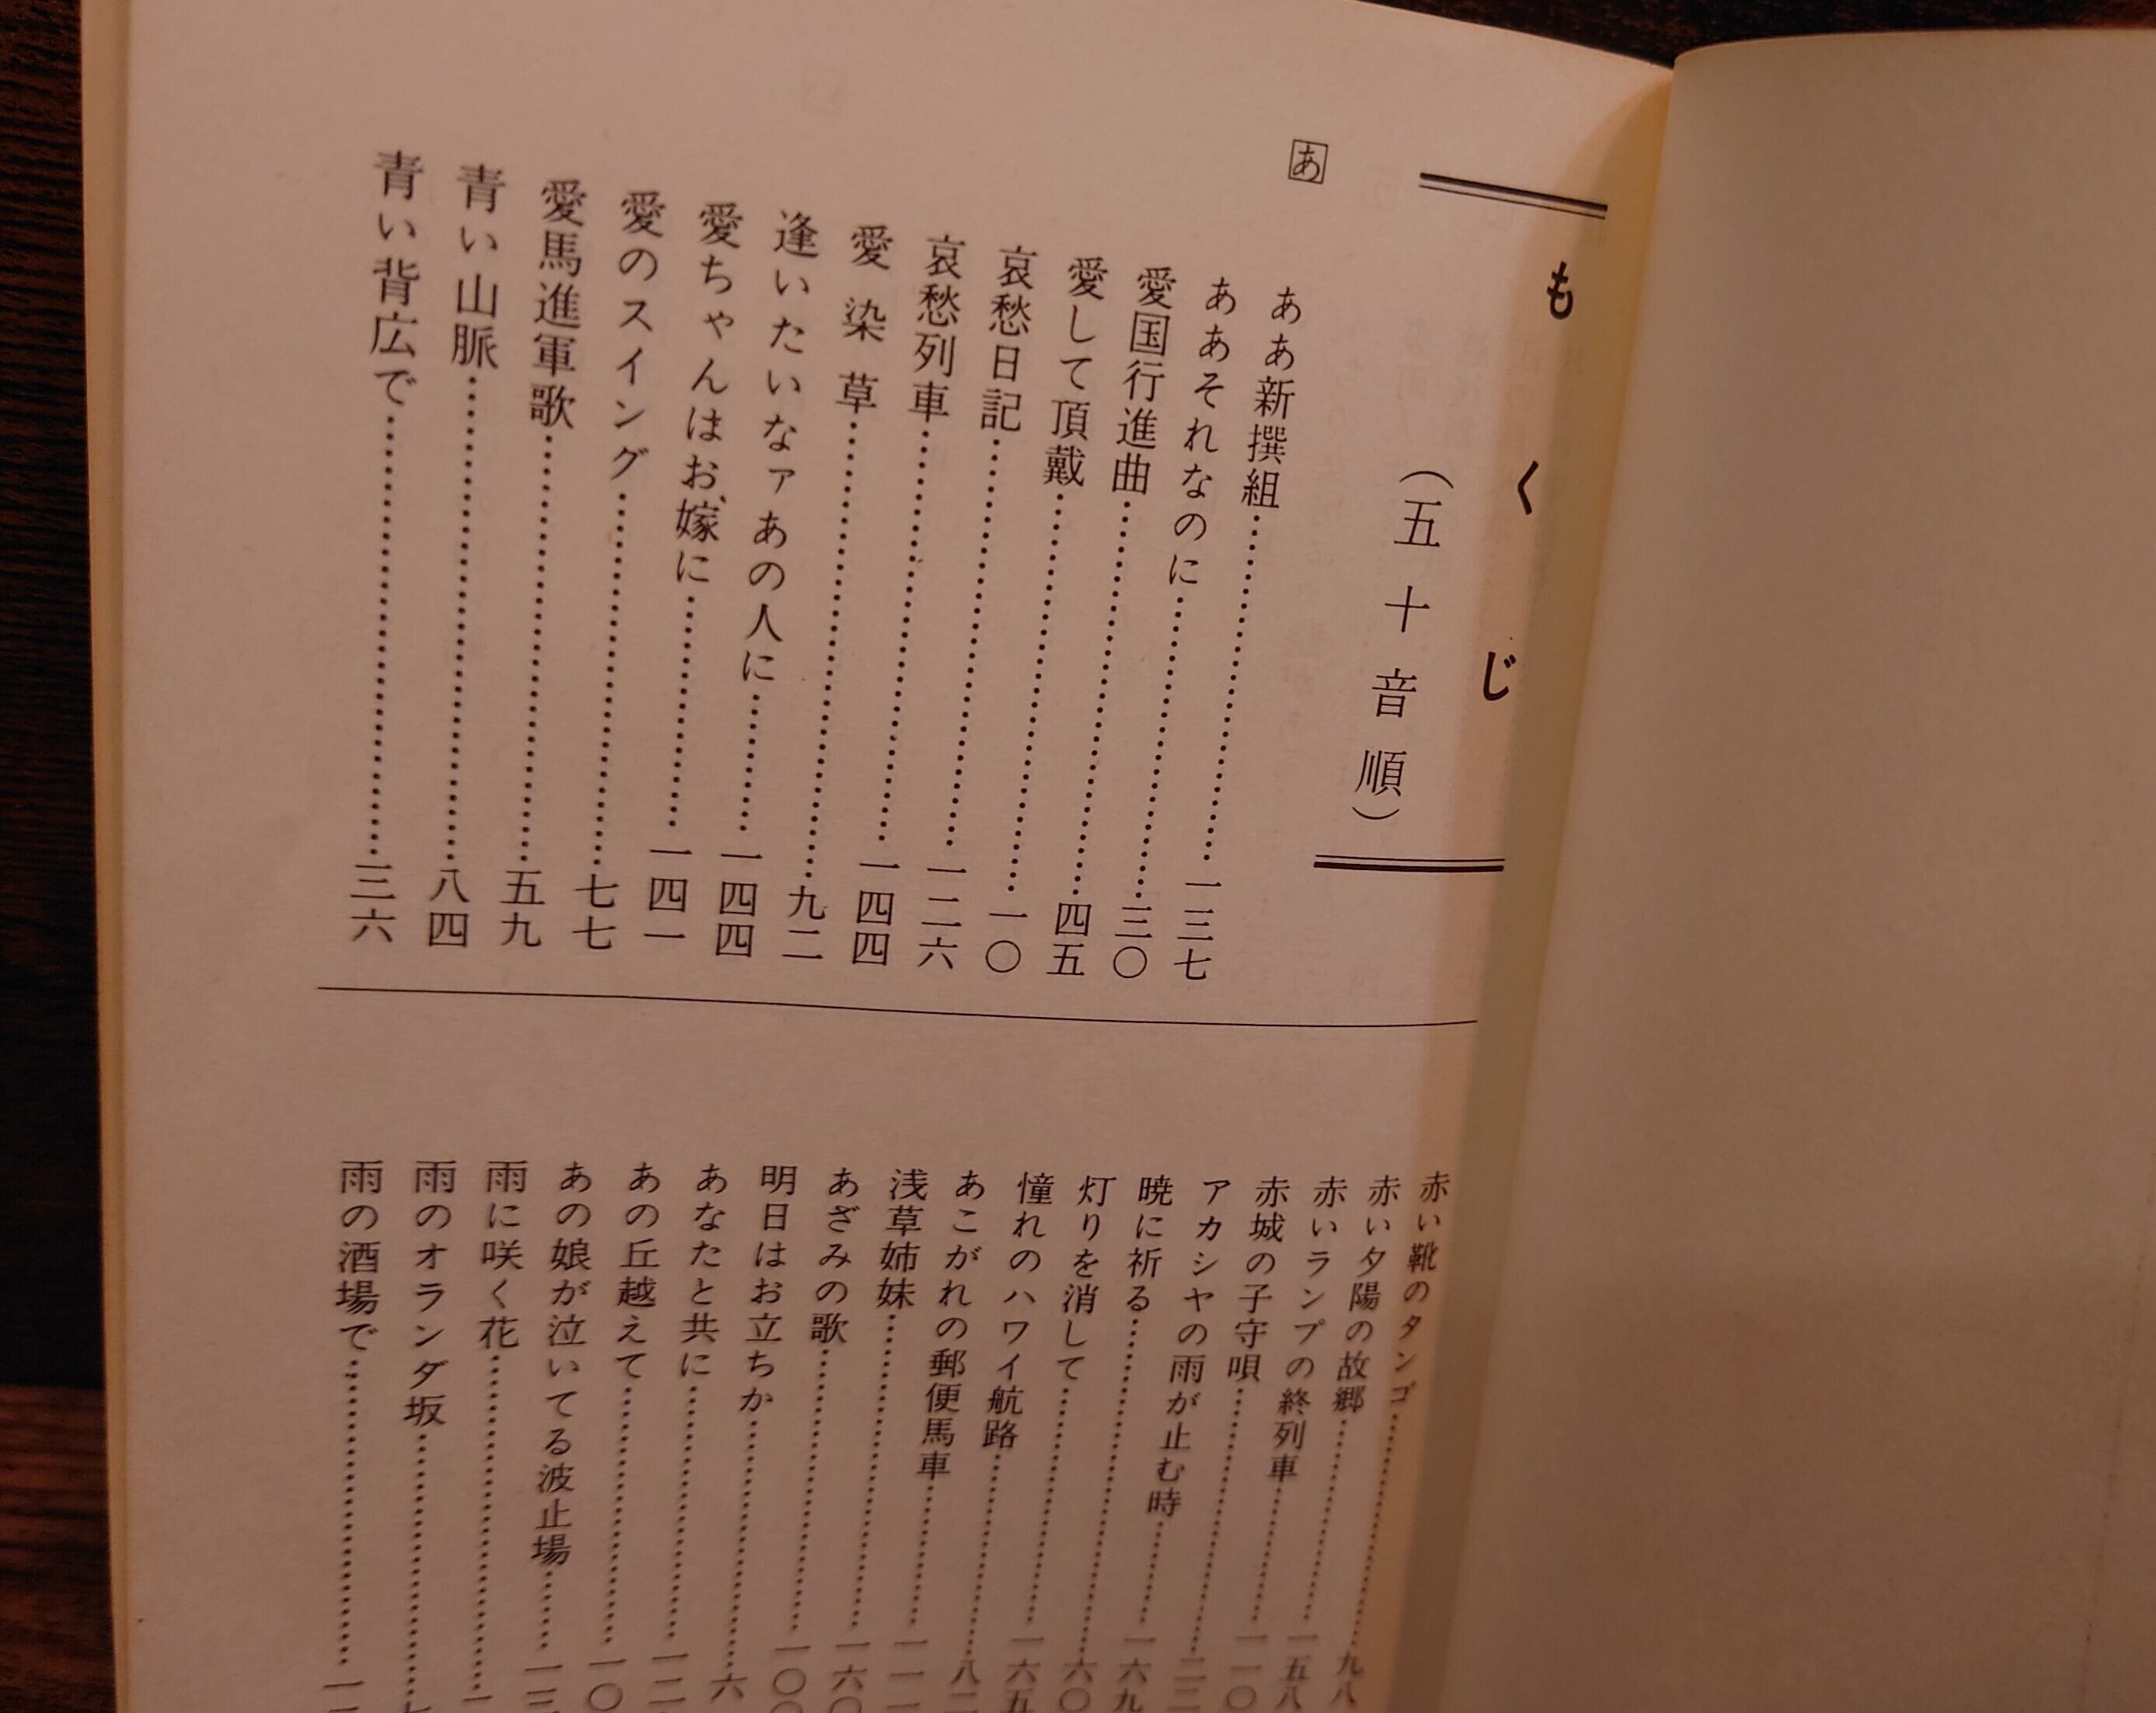 もくじ
（五十音順）
あ
ああ新撰組……一三七
ああそれなのに……三〇
愛国行進曲……四五
愛して頂戴……一〇
哀愁日記……一二六
哀愁列車……一四四
愛染草……九二
逢いたいなァあの人に……一四四
愛ちゃんはお嫁に……一四一
愛のスイング……七七
愛馬進軍歌……五九
青い山脈……八四
青い背広で……三六
赤い靴のタンゴ……九八
赤い夕陽の故郷……一五八
赤いランプの終列車……一一〇
赤城の子守唄……
アカシヤの雨が止む時……一六九
暁に祈る……六〇
灯りを消して……一六五
憧れのハワイ航路……
あこがれの郵便馬車……
浅草姉妹……一六〇
あざみの歌……一〇〇
明日はお立ちか……六
あなたと共に……
あの丘越えて……一〇
あの娘が泣いてる波止場……
雨に咲く花……
雨のオランダ坂……
雨の酒場で……